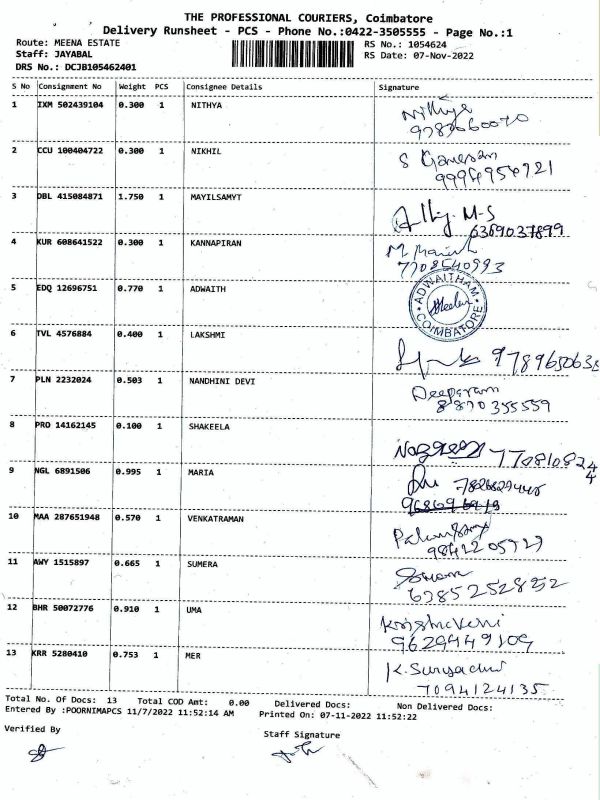 THE PROFESSIONAL COURIERS, Coimbatore
Delivery Runsheet - PCS - Phone No.:0422-3505555 - Page No.:1
Route: MEENA ESTATE RS No.: 1054624
Staff: JAYABAL RS Date: 07-Nov-2022
DRS No.: DCJB105462401
S No Consignment No Weight PCS Consignee Details Signature
1 IXM 502439104 0.300 1 NITHYA Nithya
9787660070
2 CCU 100404722 0.300 1 NIKHIL S Ganesan
9994954721
3 DBL 415084871 1.750 1 MAYILSAMYT M-S
6369037899
4 KUR 608641522 0.300 1 KANNAPIRAN M
7708540993
5 EDQ 12696751 0.770 1 ADWAITH ADWAITHAM COIMBATORE
6 TVL 4576884 0.400 1 LAKSHMI 978965063
7 PLN 2232024 0.503 1 NANDHINI DEVI Deeparam
8870355559
8 PRO 14162145 0.100 1 SHAKEELA 7708108244
9 NGL 6891506 0.995 1 MARIA
10 MAA 287651948 0.570 1 VENKATRAMAN
9842205727
11 AWY 1515897 0.665 1 SUMERA
6385252832
12 BHR 50072776 0.910 1 UMA Krishnaveni
9629449109
13 KRR 5280410 0.753 1 MER K.Surya
7094124135
Total No. Of Docs: 13 Total COD Amt: 0.00 Delivered Docs: Non Delivered Docs:
Entered By :POORNIMAPCS 11/7/2022 11:52:14 AM Printed On: 07-11-2022 11:52:22
Verified By Staff Signature